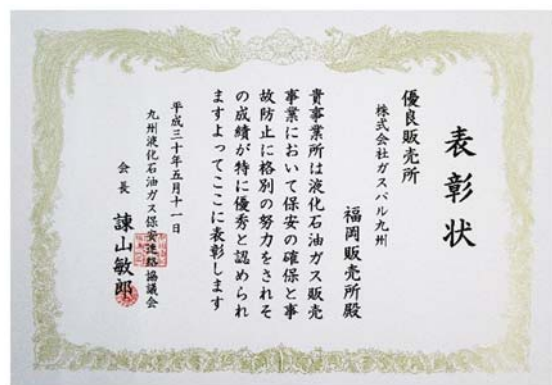 表彰状
優良販売所
株式会社ガスパル九州
福岡販売所殿
貴事業所は液化石油ガス販売
事業において保安の確保と事
故防止に格別の努力をされそ
の成績が特に優秀と認められ
ますよってここに表彰します
平成三十年五月十一日
九州液化石油ガス保安連絡協議会
会長 諌山敏郎